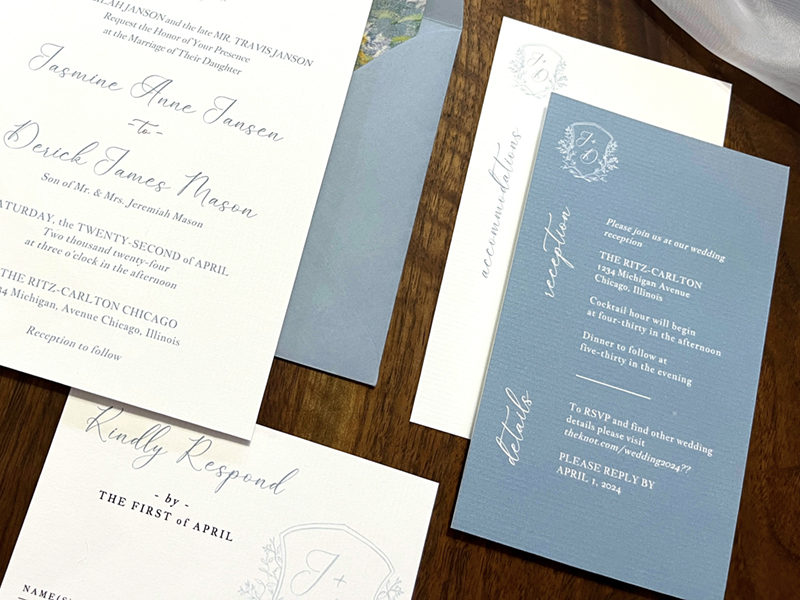 JANSON and the late MR. TRAVIS JANSON
Request the Honor of Your Presence
at the Marriage of Their Daughter
Jasmine Anne Jansen
-to-
Derick James Mason
Son of Mr. & Mrs. Jeremiah Mason
SATURDAY, the TWENTY-SECOND of APRIL
Two thousand twenty-four
at three o'clock in the afternoon
THE RITZ-CARLTON CHICAGO
Michigan, Avenue Chicago, Illinois
Reception to follow
Kindly Respond
- by -
THE FIRST of APRIL
J+
NAME(S
J+
D
accommodations
J+
D
reception
Please join us at our wedding
reception
THE RITZ-CARLTON
1234 Michigan Avenue
Chicago, Illinois
Cocktail hour will begin
at four-thirty in the afternoon
Dinner to follow at
five-thirty in the evening
details
To RSVP and find other wedding
details please visit
theknot.com/wedding2024??
PLEASE REPLY BY
APRIL 1, 2024